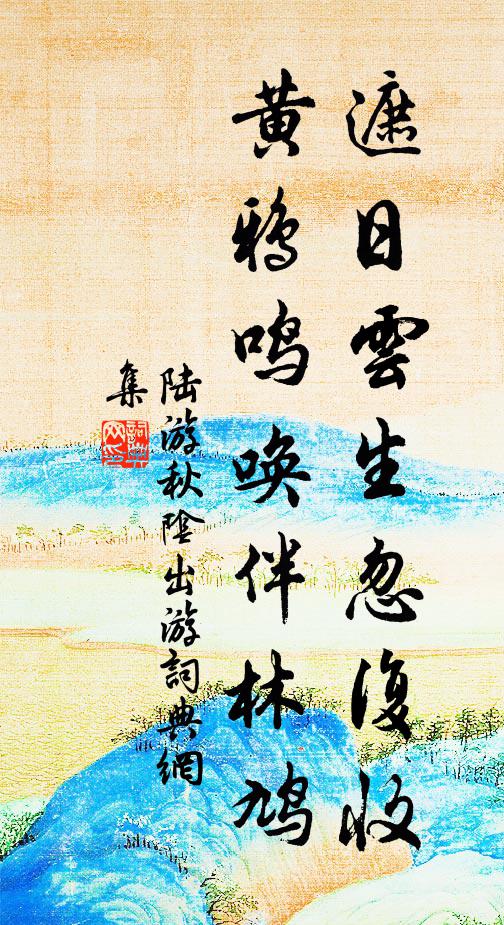 遮日雲生忽復收
黃鴉鳴喚伴林鳩
陆游秋陰出游詞典網
集